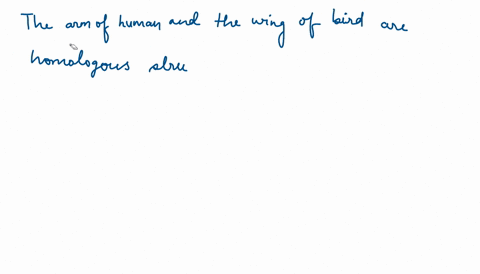 The arm of human and the wing of bird are
homologous stru